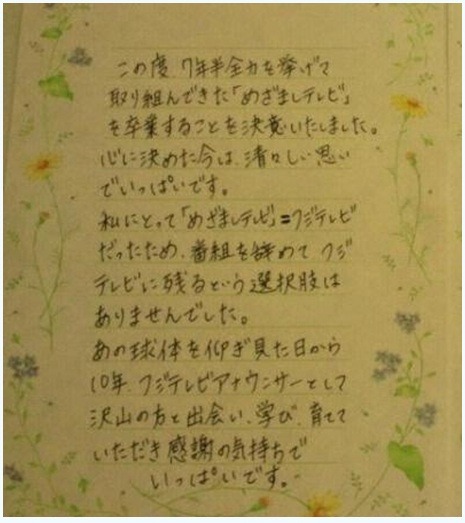 この度、7年半全力を挙げて
取り組んできた「めざましテレビ」
を卒業することを決意いたしました。
心に決めた今は、清々しい思い
でいっぱいです。
私にとって「めざましテレビ」=フジテレビ
だったため、番組を辞めて フジ
テレビに残るという選択肢は
ありませんでした。
あの球体を仰ぎ見た日から
10年、フジテレビアナウンサーとして
沢山の方と出会い、学び、育てて
いただき感謝の気持ちで
いっぱいです。